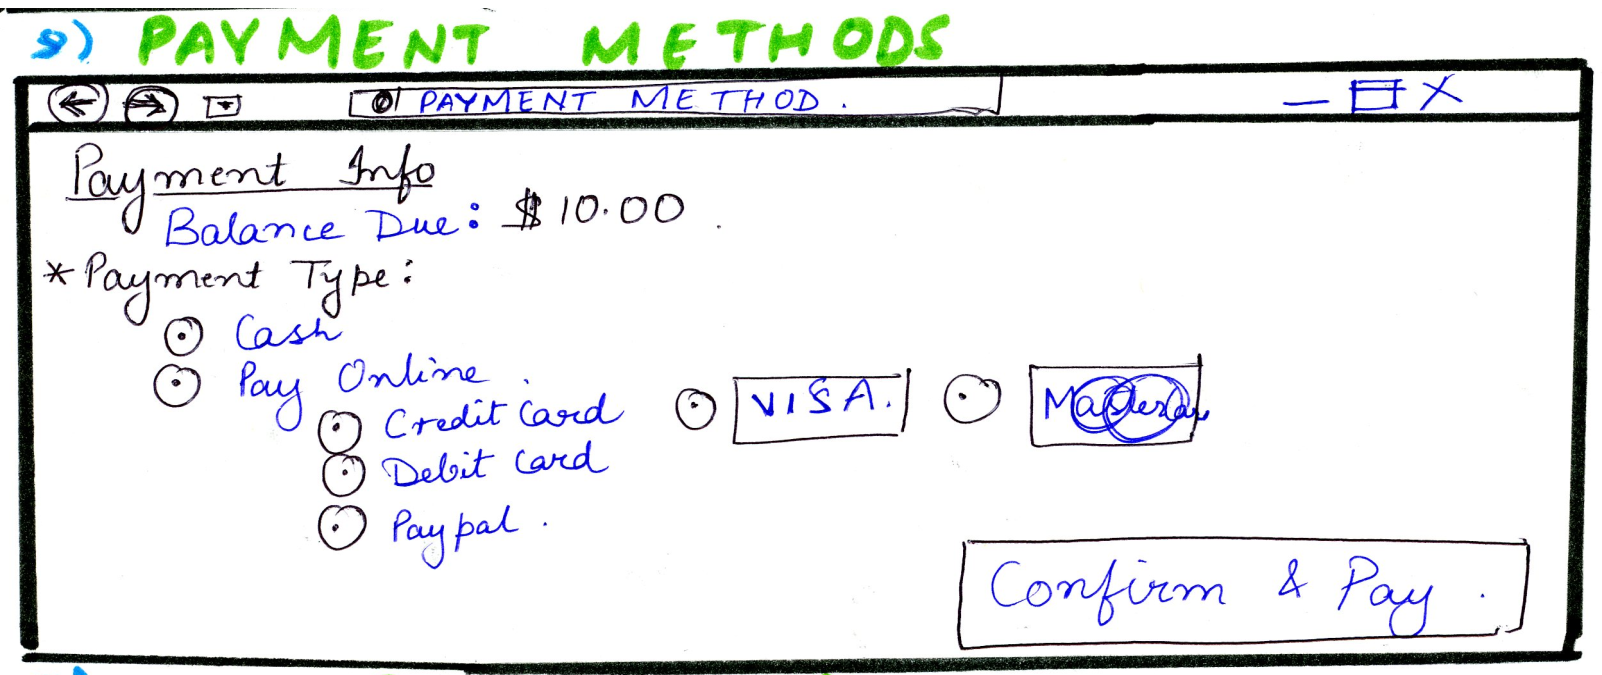 9) PAYMENT METHODS
PAYMENT METHOD.
Payment Info
Balance Due: $10.00
* Payment Type:
Cash
Pay Online.
Credit Card VISA. Mastercar
Debit Card
Paypal.
Confirm & Pay.